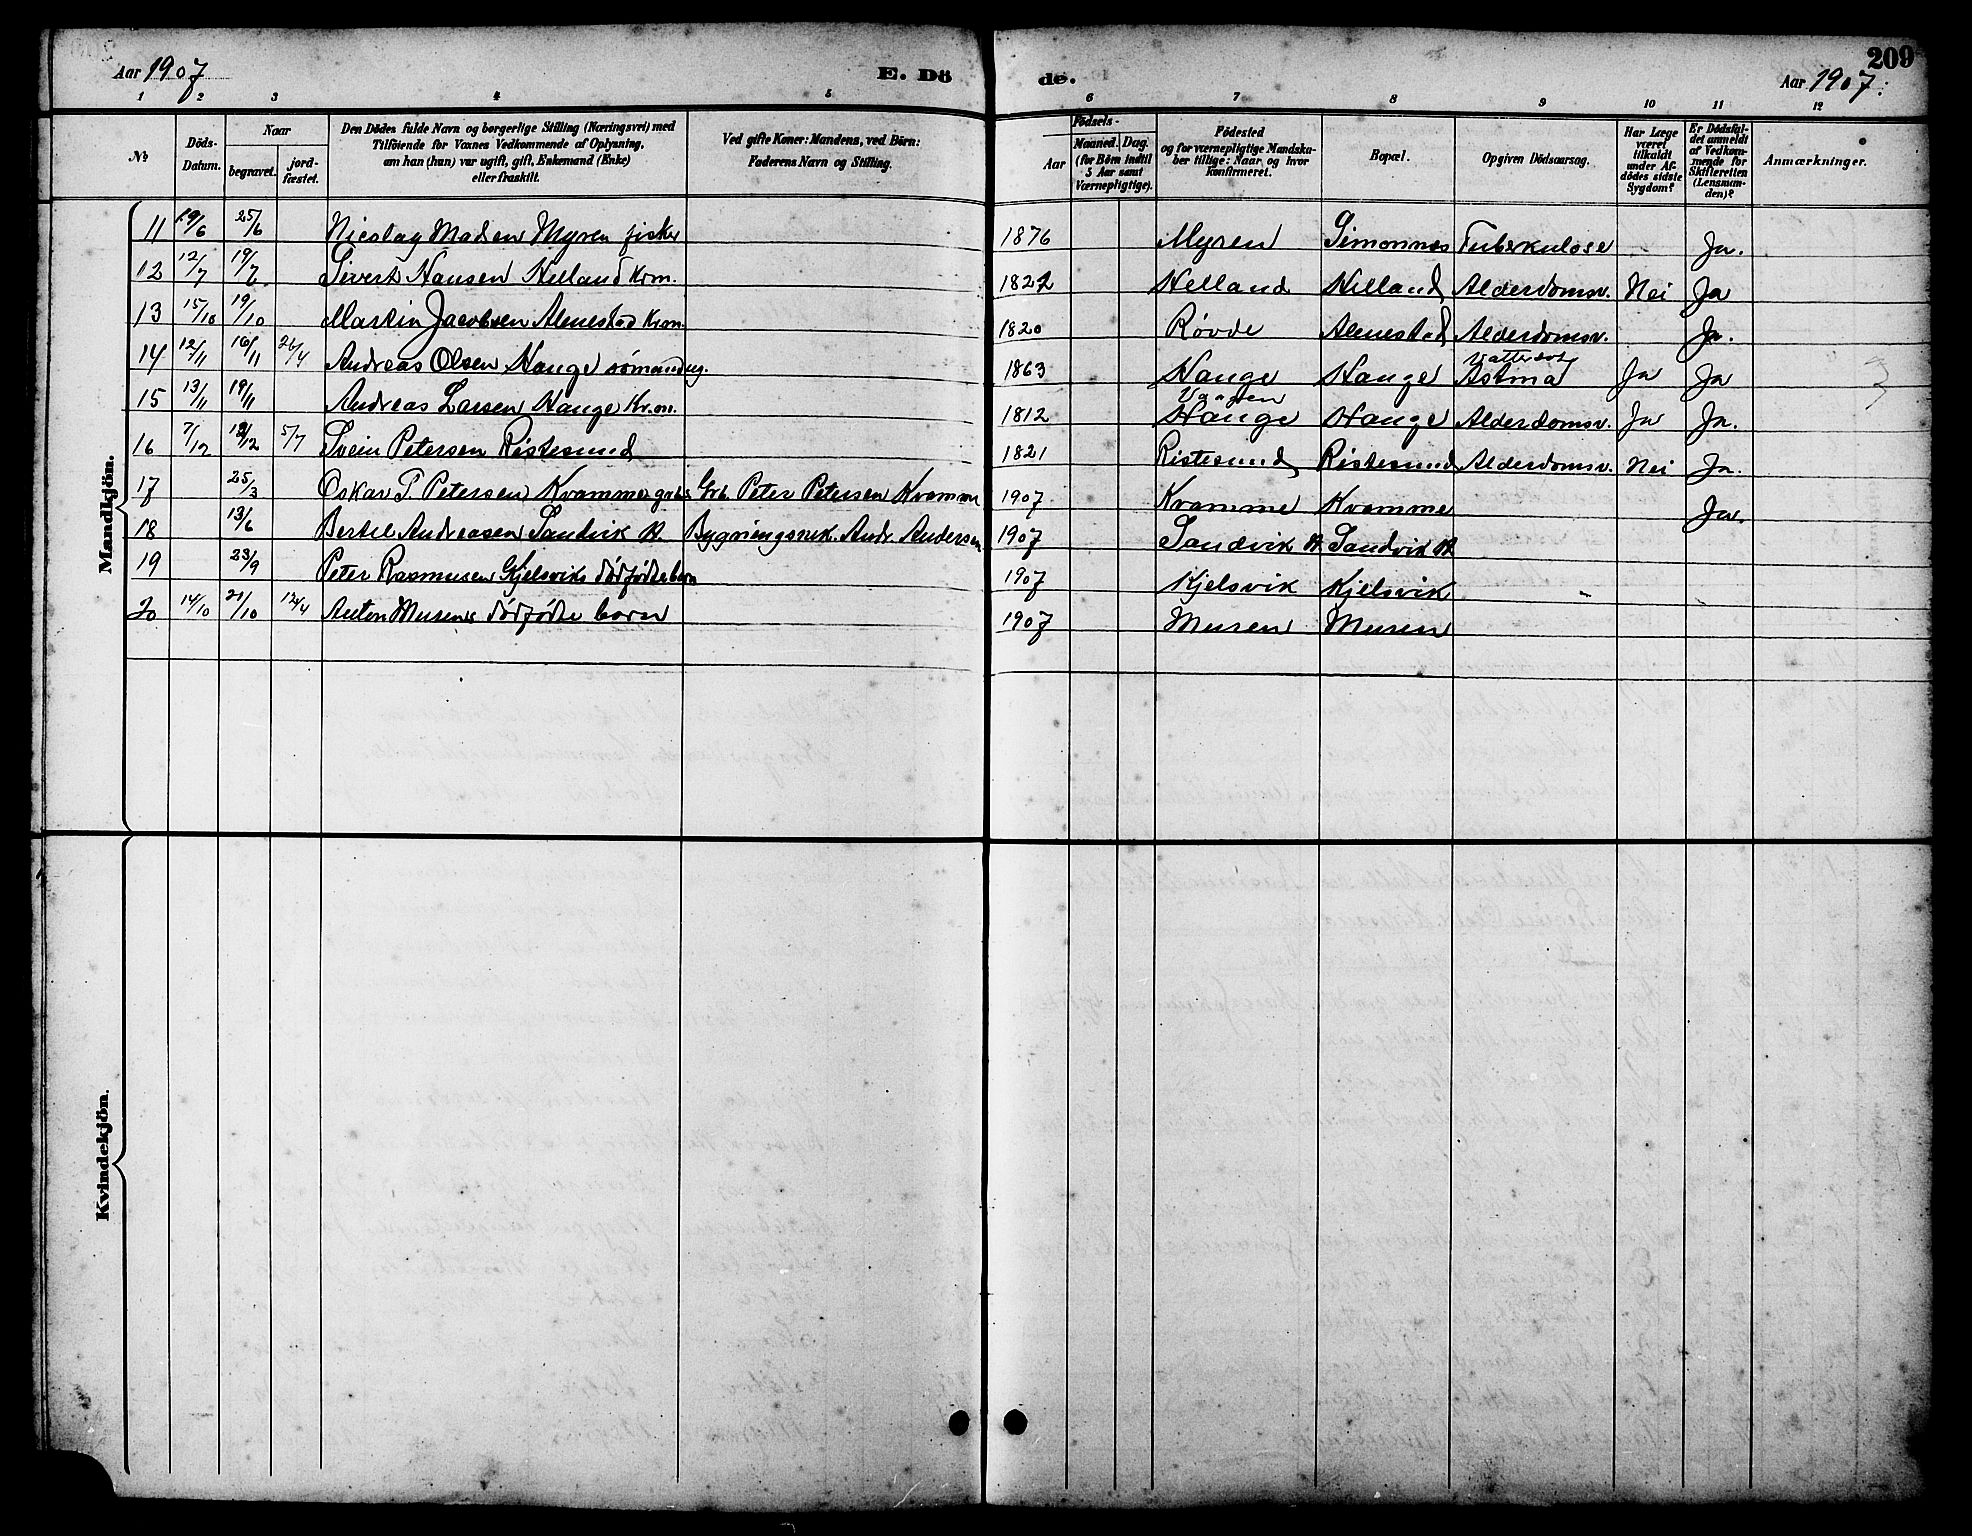 209
Aar 1907
E. Dö
de.
Aar 1907.
1 2 3 4 5 6 7 8 9 10 11 12
№
Döds-Datum.
Naar
begravet.
jord-fæstet.
Den Dödes fulde Navn og borgerlige Stilling (Næringsvei) med
Tilföiende for Voxnes Vedkommende af Oplysning,
om han (hun) var ugift, gift, Enkemand (Enke)
eller fraskilt.
Ved gifte Koner: Mandens, ved Börn:
Faderens Navn og Stilling.
Födsels-
Aar
Maaned. Dag.
(for Börn indtil
5 Aar samt
Værnepligtige).
Födested
og for værnepligtige Mandska-
ber tillige: Naar og hvor
konfirmeret.
Bopæl.
Opgiven Dödsaarsag.
Har Læge
været
tilkaldt
under Af-
dödes sidste
Sygdom?
Er Dödsfal-
det anmeldt
af Vedkom-
mende for
Skifteretten
(Lensman-
den)?
Anmærkninger.
Mandkjön.
11 19/6 25/6 Nicolay Madsen Myren fisker 1876 Myren Simonnes Tuberkulose Ja.
12 12/7 19/7 Sivert Hansen Helland Krm. 1822 Helland Helland Alderdomsv. Nei Ja
13 15/10 19/10 Martin Jacobsen Almestad Krm. 1820 Røvde Almestad Alderdomsv. Ja.
14 12/11 16/11 26/4 Andreas Olsen Hauge sömand ug. 1863 Hauge Hauge Vattersot Astma Ja Ja
15 13/11 19/11 Andreas Larsen Hauge Kr.m. 1812 Vaagen Hauge Hauge Alderdomsv. Ja Ja.
16 7/12 12/12 5/7 Svein Petersen Ristesund 1821 Ristesund Ristesund Alderdomsv. Nei Ja.
17 25/3 Oskar P. Petersen Kvamme grbs Grb. Peter Petersen Kvamme 1907 Kvamme Kvamme Ja.
18 13/6 Bertel Andreasen Sandvik H. Bygningsnek. Andr. Andersen 1907 Sandvik H. Sandvik H.
19 23/9 Peter Rasmusen Kjelsviks dødfødte barn 1907 Kjelsvik Kjelsvik
20 14/10 21/10 12/4 Anton Musens dødfødte barn 1907 Musen Musen
Kvindekjön.